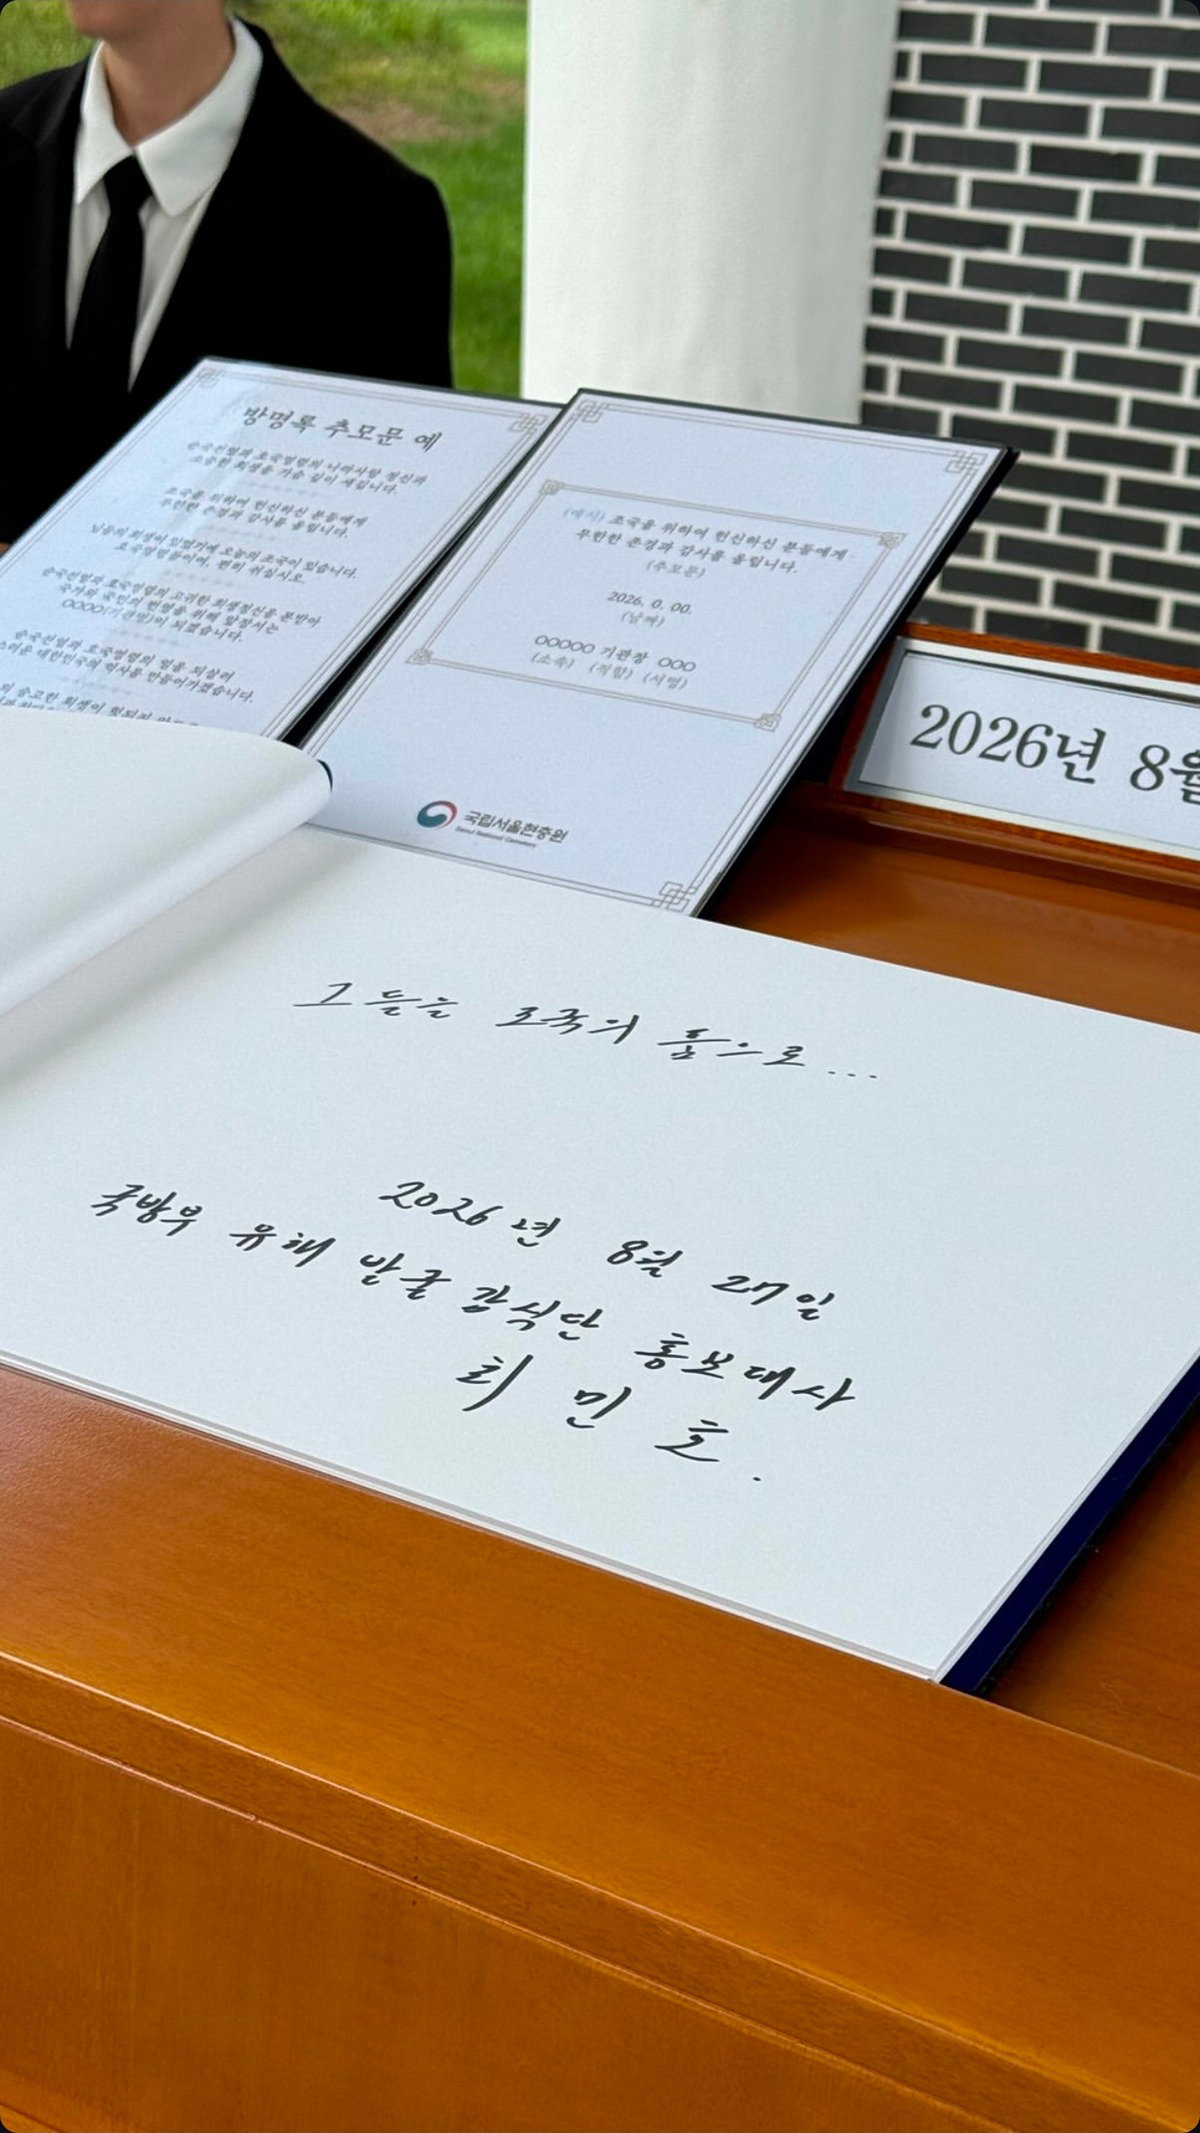 방명록 추모문 예
순국선열과 호국영령의 나라사랑 정신과
소중한 희생을 가슴 깊이 새깁니다.
조국을 위하여 헌신하신 분들에게
무한한 존경과 감사를 올립니다.
님들의 희생이 있었기에 오늘의 조국이 있습니다.
호국영령들이여, 편히 쉬십시오.
순국선열과 호국영령의 고귀한 희생정신을 본받아
국가와 국민의 번영을 위해 앞장서는
OOOO(기관명)이 되겠습니다.
순국선열과 호국영령의 얼을 되살려
대한민국의 역사를 만들어가겠습니다.
숭고한 희생이 헛되지
(예시) 조국을 위하여 헌신하신 분들에게
무한한 존경과 감사를 올립니다.
(추모문)
2026. 0. 00.
(날짜)
OOOOO 기관장 OOO
(소속) (직함) (서명)
국립서울현충원
Seoul National Cemetery
2026년 8월
그들을 조국의 품으로...
2026년 8월 27일
국방부 유해 발굴 감식단 홍보대사
최민호.